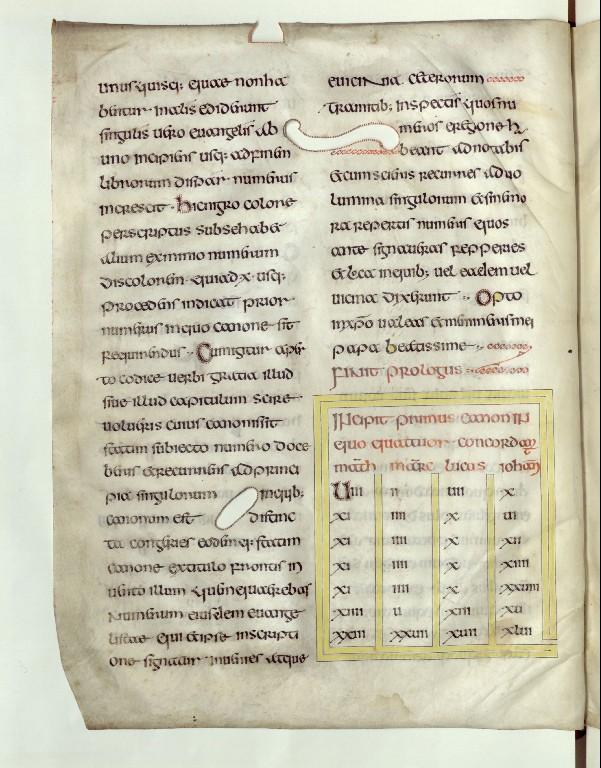 unusquisq; equae non ha
buitur in aliis ediderunt
singulis uero euangeliis ab
uno incipiens usq; ad finem
librorum dispar numerus
increscit · hic nigro colore
perscriptus sub se habet
alium ex minio numerum
discolorem · qui ad x · usq;
procedens indicat prior
numerus in quo canone sit
requirendus · Cum igitur aper
to codice uerbi gratia illud
siue illud capitulum scire
uolueris cuius canonis sit
statim subiecto numero doce
beris et recurrens ad princi
pia singulorum in quib;
canonum est distinc
ta congeries eodemq; statim
canone ex titulo frontis in
uento illum quem querebas
numerum eiusdem euange
listae qui et ipse inscripti
one signatur inuenies atque
euicina ceterorum
tramitib; inspectis quos nu
meros e regione h
beant adnotabis
et cum scieris recurres ad uo
lumina singulorum et sine mo
ra repertis numeris quos
ante signaueras repperies
et loca in quib; uel eadem uel
uicina dixerunt · Opto
in xpo ualeas et memineris mei
papa beatissime
finit prologus
Incipit primus canon in
quo quattuor concordant
math marc lucas iohan
Uiii ii uii x
xi iiii x ui
xi iiii x xii
xi iiii x xiiii
xi iiii x xxuiii
xiiii u xiii xu
xxiii xxuii xuii xlui